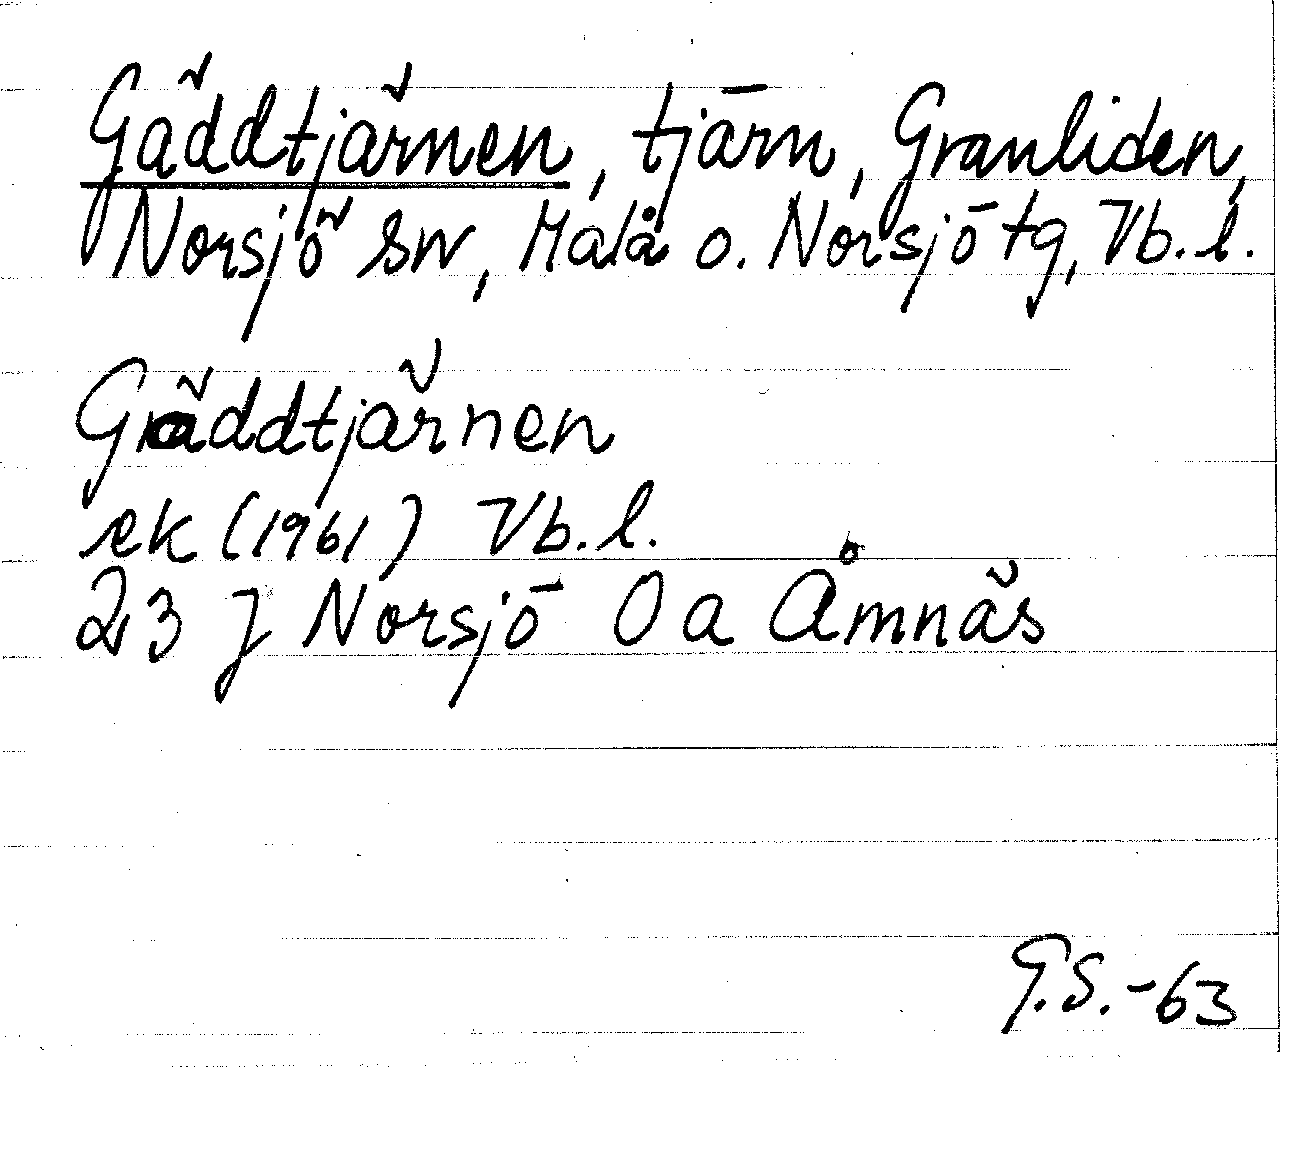 Gäddtjärnen, tjärn, Granliden,
Norsjö sn, Malå o. Norsjö tg, Vb. l.
Gäddtjärnen
ek (1961) Vb. l.
23 J Norsjö 0 a Åmnäs
G.S.-63